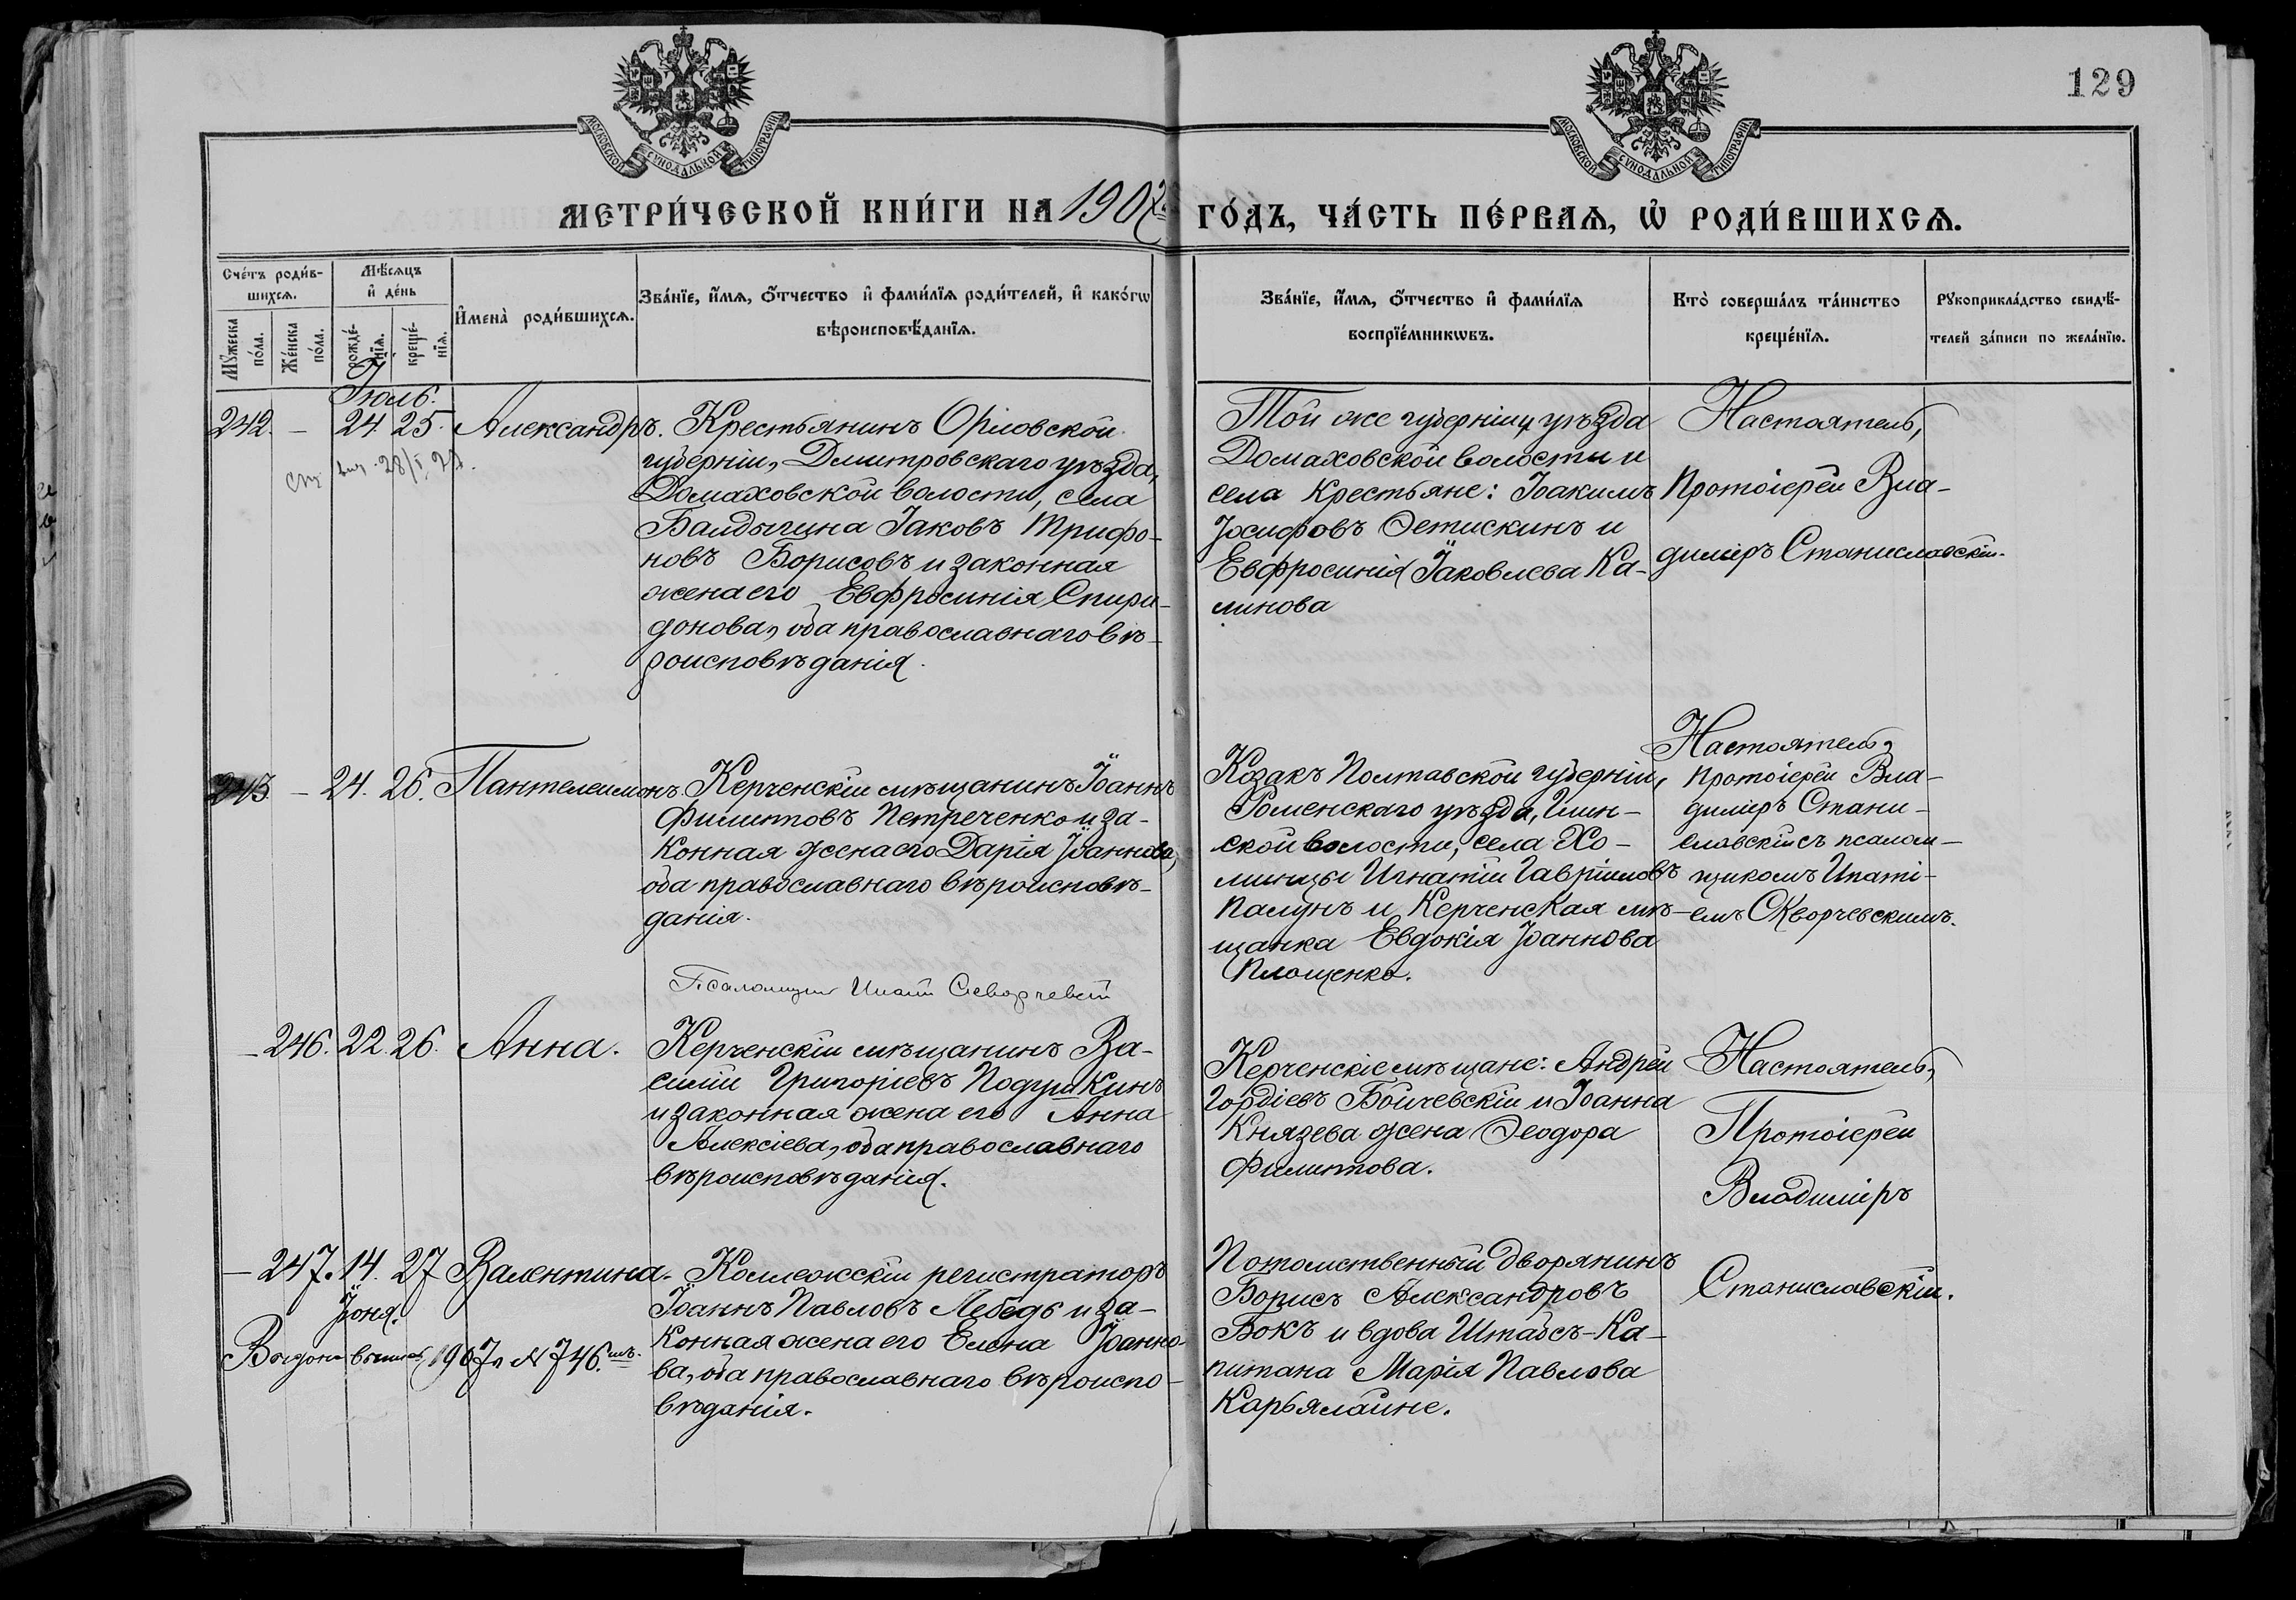 129
МОСКОВСКОЙ СѴНОДАЛЬНОЙ ТИПОГРАФІИ
МОСКОВСКОЙ СѴНОДАЛЬНОЙ ТИПОГРАФІИ
МЕТРИ́ЧЕСКОЙ КНИ́ГИ НА 1907 ГО́ДЪ, ЧА́СТЬ ПЕ́РВАѦ, Ѡ҆ РОДИ́ВШИХСѦ.
Сче́тъ роди́в-
шихсѧ.
Мꙋ́жеска по́ла.
Же́нска по́ла.
Мѣ́сѧцъ и҆ де́нь
рожде́-нїѧ.
креще́-нїѧ.
И҆мена̀ роди́вшихсѧ.
Зва́нїе, и҆́мѧ, ѻ҆́тчество и҆ фами́лїѧ роди́телей, и҆ како́гѡ
вѣроисповѣ́данїѧ.
Зва́нїе, и҆́мѧ, ѻ҆́тчество и҆ фами́лїѧ
воспрїе́мникѡвъ.
Кто̀ соверша́лъ та́инство
креще́нїѧ.
Рꙋкоприкла́дство свидѣ́-
телей за́писи по жела́нїю.
Іюль.
242. – 24. 25. Александръ.
Крестьянинъ Орловской
губерніи, Дмитровскаго уѣзда,
Домаховской волости, села
Балдычина Іаковъ Трифо-
новъ Борисовъ и законная
жена его Евфросинія Спири-
донова, оба православнаго вѣ-
роисповѣданія.
Той же губерніи и уѣзда
Домаховской волости и
села крестьяне: Іоакимъ
Іосифовъ Ѳетискинъ и
Евфросинія Іаковлева Ка-
линова
Настоятель,
Протоіерей Вла-
диміръ Станиславскій.
243. – 24. 26. Пантелеимонъ.
Керченскій мѣщанинъ Іоаннъ
Филипповъ Петреченко и за-
конная жена его Дарія Іоаннова,
оба православнаго вѣроисповѣ-
данія.
Псаломщик Ипатій Скворчевскій
Козакъ Полтавской губерніи,
Роменскаго уѣзда,
ской волости, села Хо-
минцы Игнатій Гавріиловъ
Палунъ и Керченская мѣ-
щанка Евдокія Іоаннова
Площенко.
Настоятель,
Протоіерей Вла-
диміръ Стани-
славскій съ псалом-
щикомъ Ипаті-
емъ Скворчевскимъ.
– 246. 22. 26. Анна.
Керченскій мѣщанинъ Ва-
силій Григоріевъ Подушкинъ
и законная жена его Анна
Алексіева, оба православнаго
вѣроисповѣданія.
Керченскіе мѣщане: Андрей
Гордіевъ Бойчевскій и Іоанна
Князева жена Ѳеодора
Филиппова.
Настоятель,
Протоіерей
Владиміръ
Станиславскій.
– 247. 14. 27 Валентина.
Іюня.
1907 г. № 746.
Коллежскій регистраторъ
Іоаннъ Павловъ Лебедь и за-
конная жена его Елена Іоанно-
ва, оба православнаго вѣроиспо-
вѣданія.
Потомственный дворянинъ
Борисъ Александровъ
Бокъ и вдова Штабсъ-Ка-
питана Марія Павлова
Карьялайне.